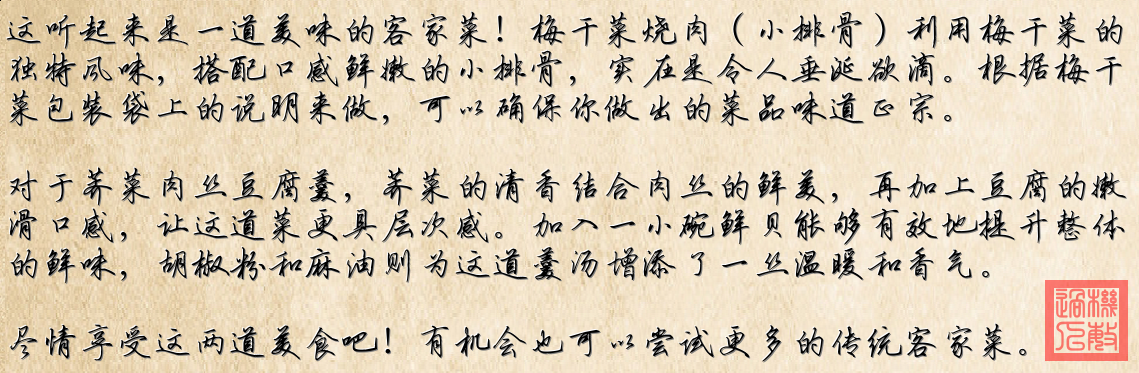 这听起来是一道美味的客家菜！梅干菜烧肉（小排骨）利用梅干菜的
独特风味，搭配口感鲜嫩的小排骨，实在是令人垂涎欲滴。根据梅干
菜包装袋上的说明来做，可以确保你做出的菜品味道正宗。
对于荠菜肉丝豆腐羹，荠菜的清香结合肉丝的鲜美，再加上豆腐的嫩
滑口感，让这道菜更具层次感。加入一小碗鲜贝能够有效地提升整体
的鲜味，胡椒粉和麻油则为这道羹汤增添了一丝温暖和香气。
尽情享受这两道美食吧！有机会也可以尝试更多的传统客家菜。